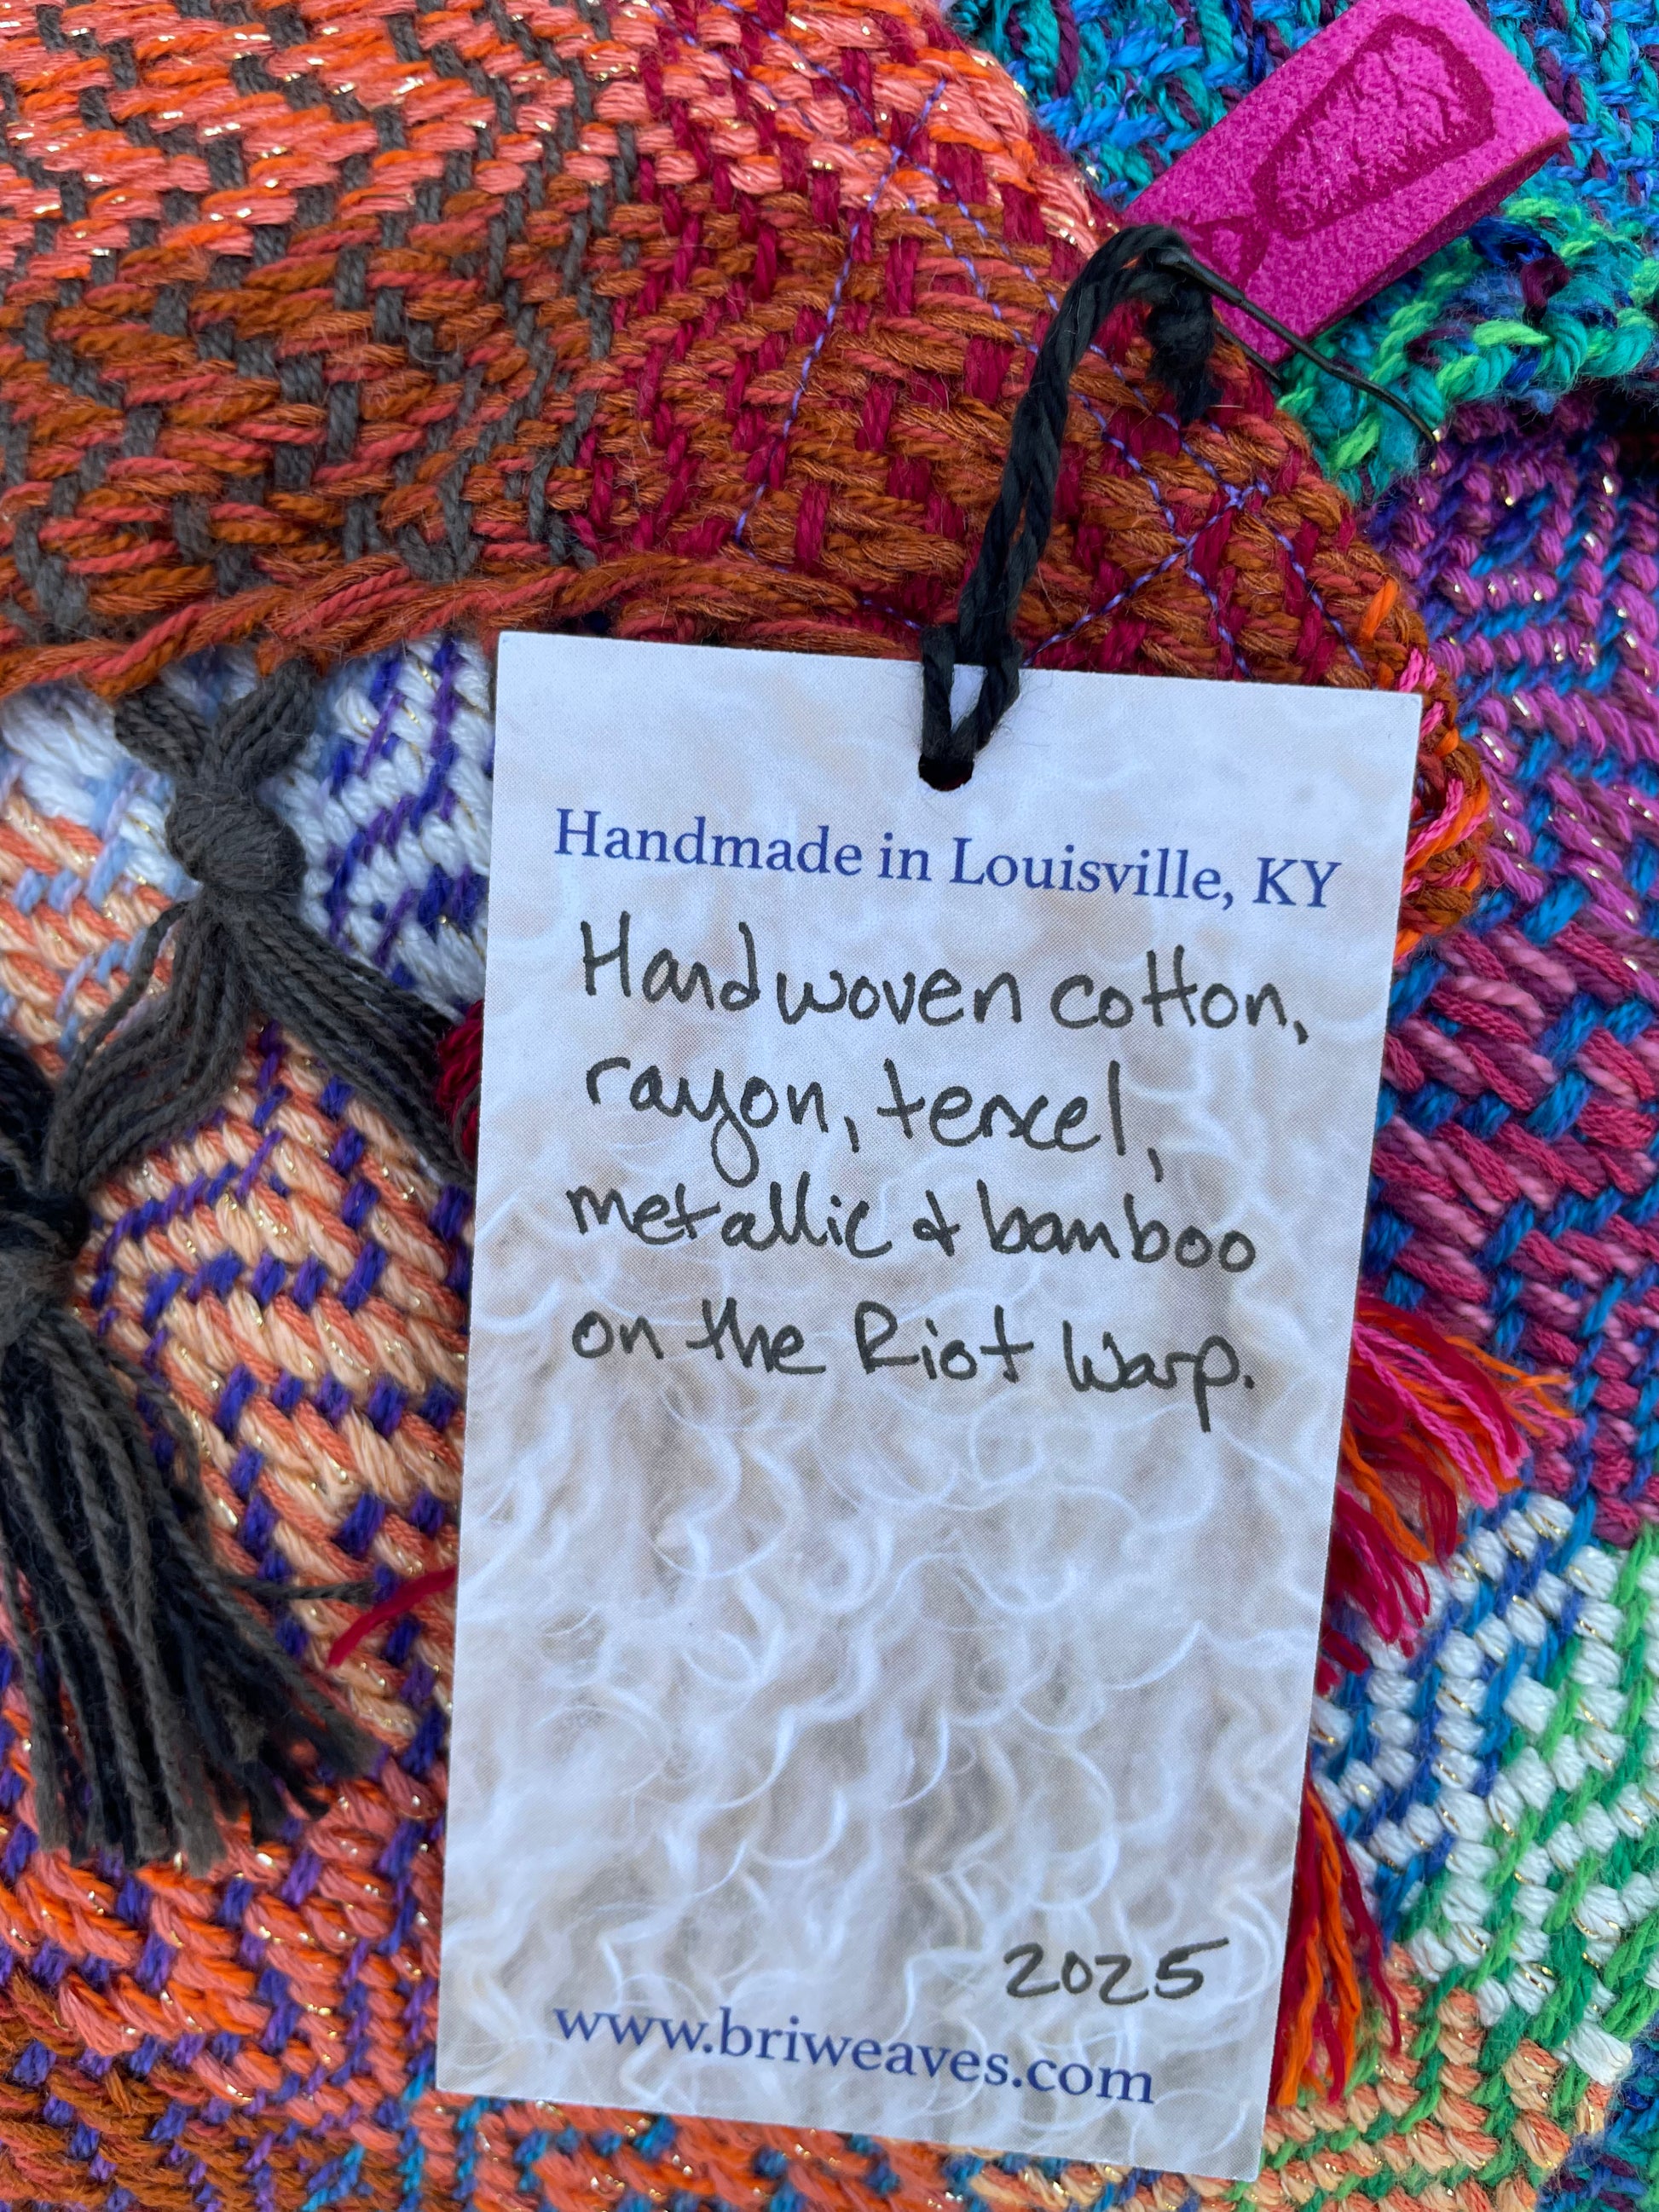 Handmade in Louisville, KY
Handwoven cotton,
rayon, tencel,
metallic & bamboo
on the Riot Warp.
2025
www.briweaves.com